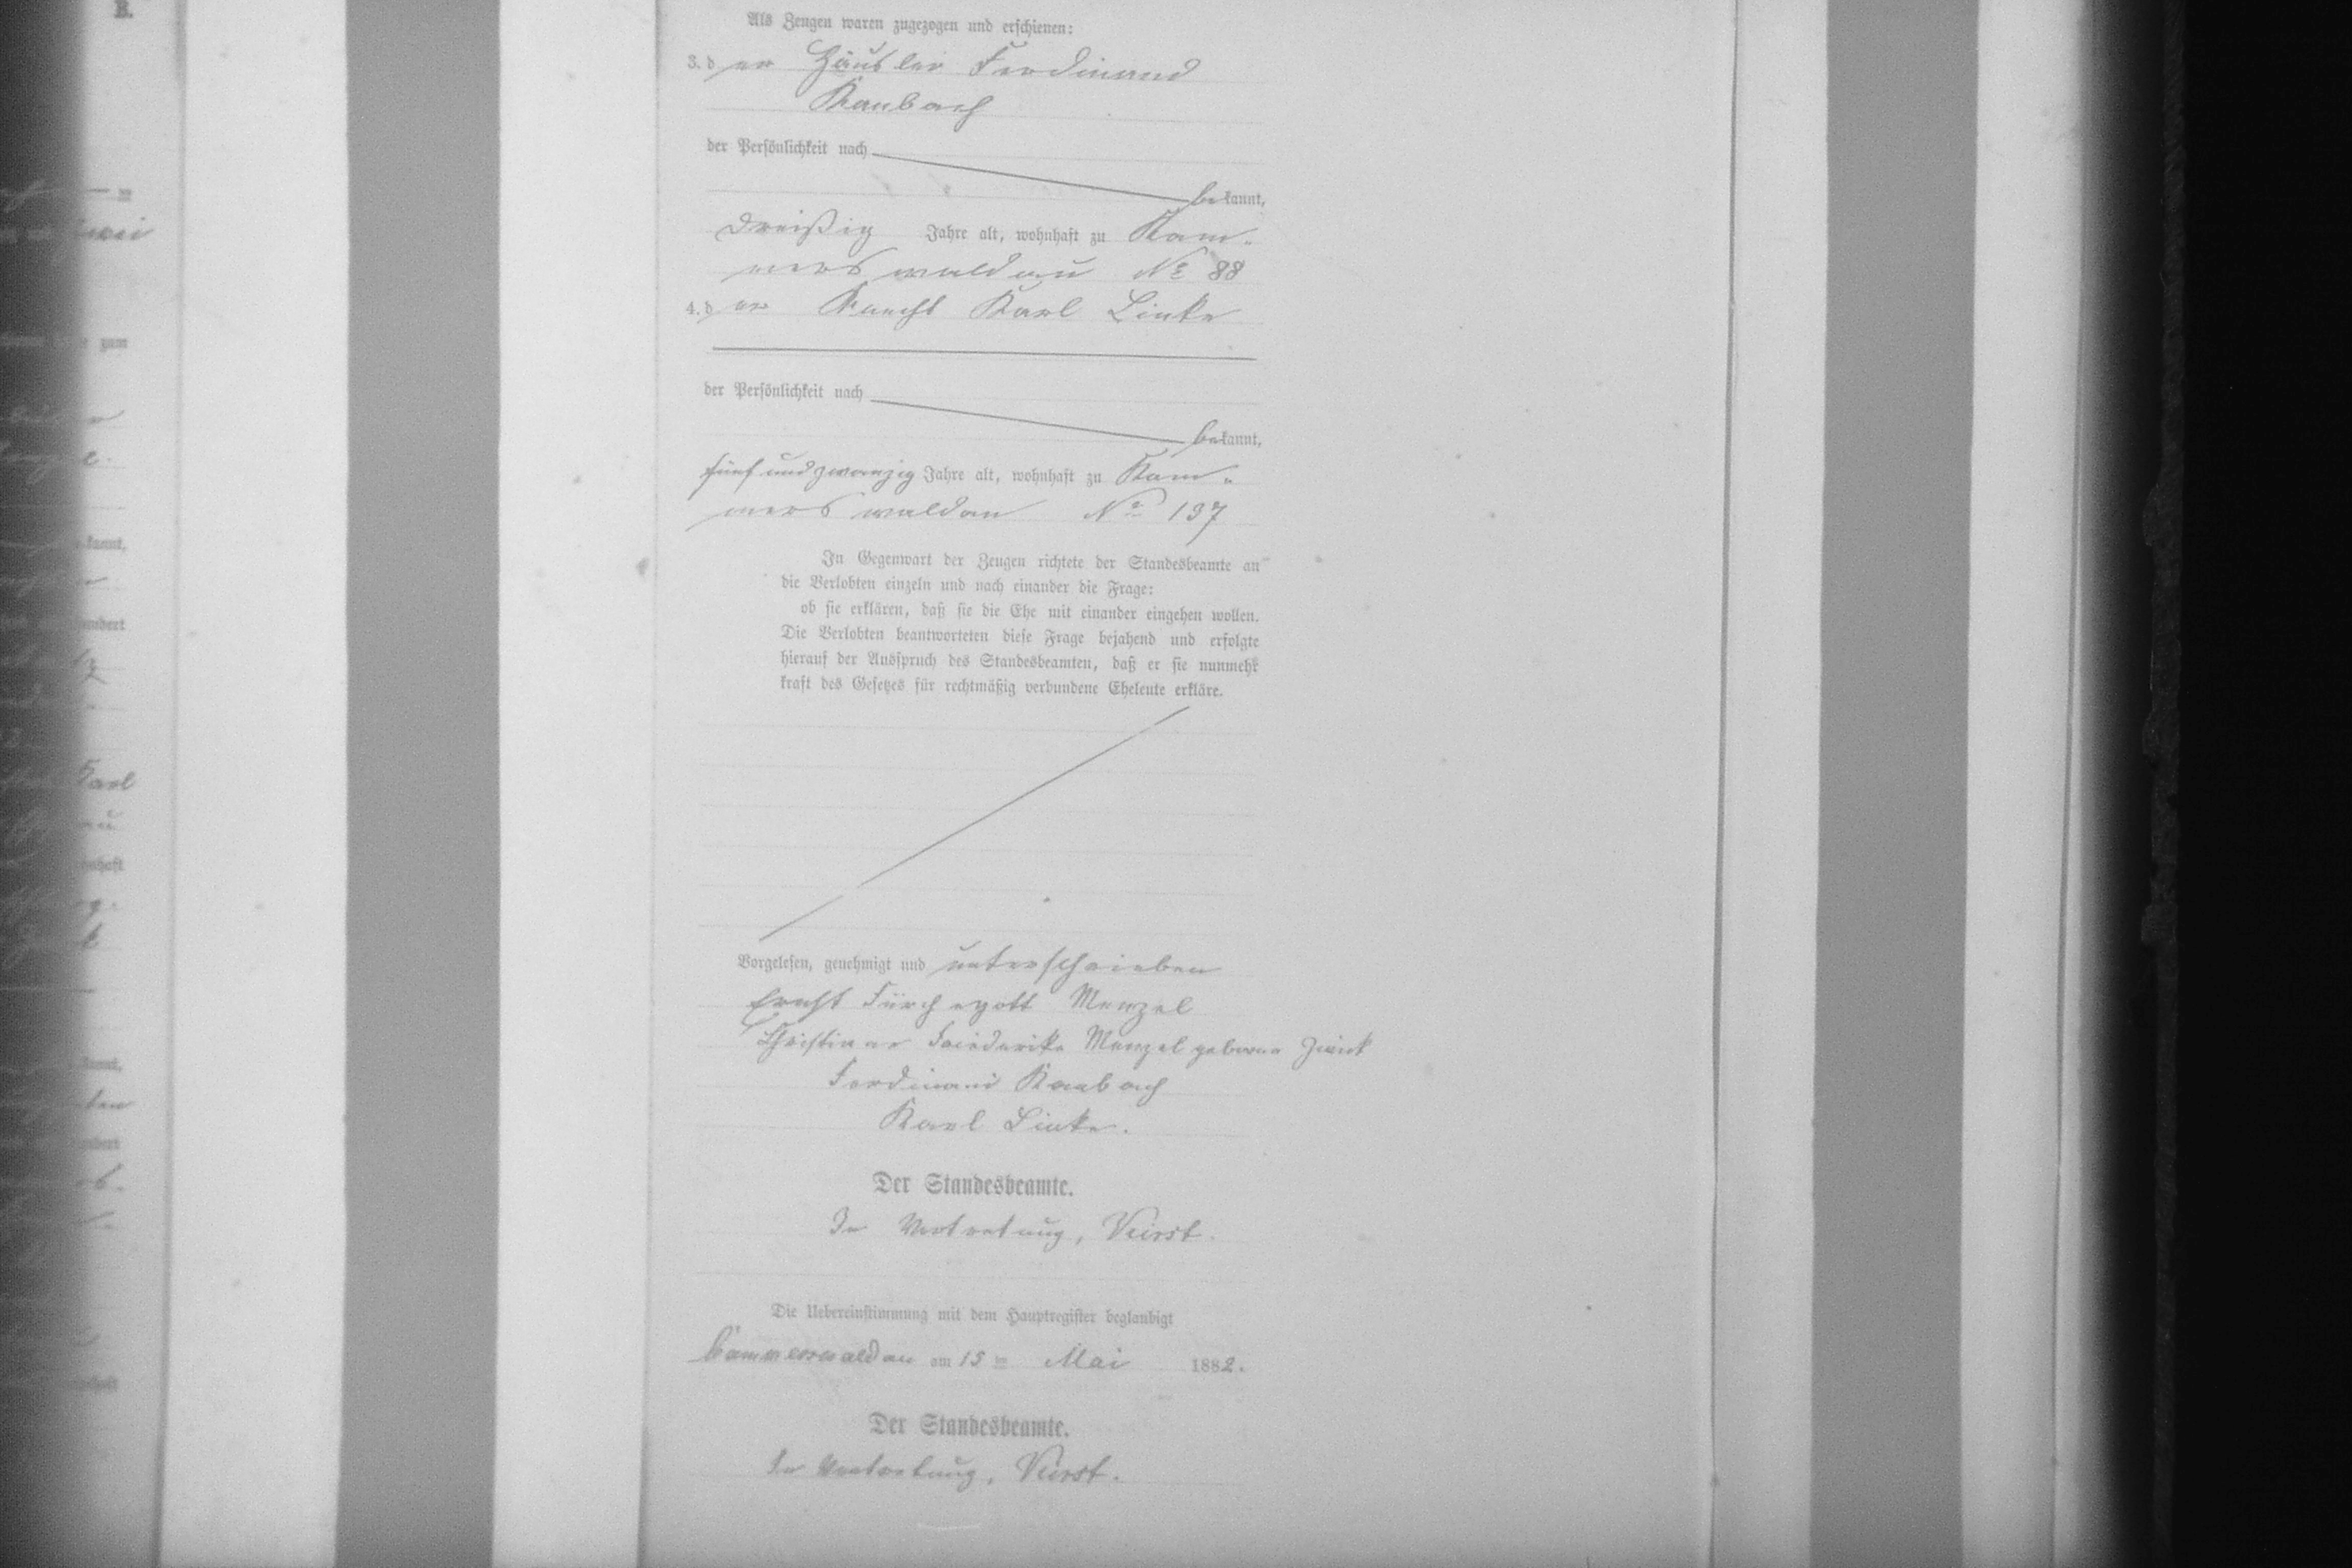 Als Zeugen waren zugezogen und erschienen:
3. der Häusler Ferdinand
Raubach
der Persönlichkeit nach
bekannt,
dreißig Jahre alt, wohnhaft zu Kam-
merswaldau No 88
4. der Knecht Karl Linke
der Persönlichkeit nach
bekannt,
fünfundzwanzig Jahre alt, wohnhaft zu Kam-
merswaldau No 137
In Gegenwart der Zeugen richtete der Standesbeamte an
die Verlobten einzeln und nach einander die Frage:
ob sie erklären, daß sie die Ehe mit einander eingehen wollen.
Die Verlobten beantworteten diese Frage bejahend und erfolgte
hierauf der Ausspruch des Standesbeamten, daß er sie nunmehr
kraft des Gesetzes für rechtmäßig verbundene Eheleute erkläre.
Vorgelesen, genehmigt und unterschrieben
Ernst Fürchegott Menzel
Christiane Friederike Menzel geborne
Ferdinand Raubach
Karl Linke.
Der Standesbeamte.
In Vertretung,
Die Uebereinstimmung mit dem Hauptregister beglaubigt
Kammerswaldau am 15 ten Mai 1882.
Der Standesbeamte.
In Vertretung,